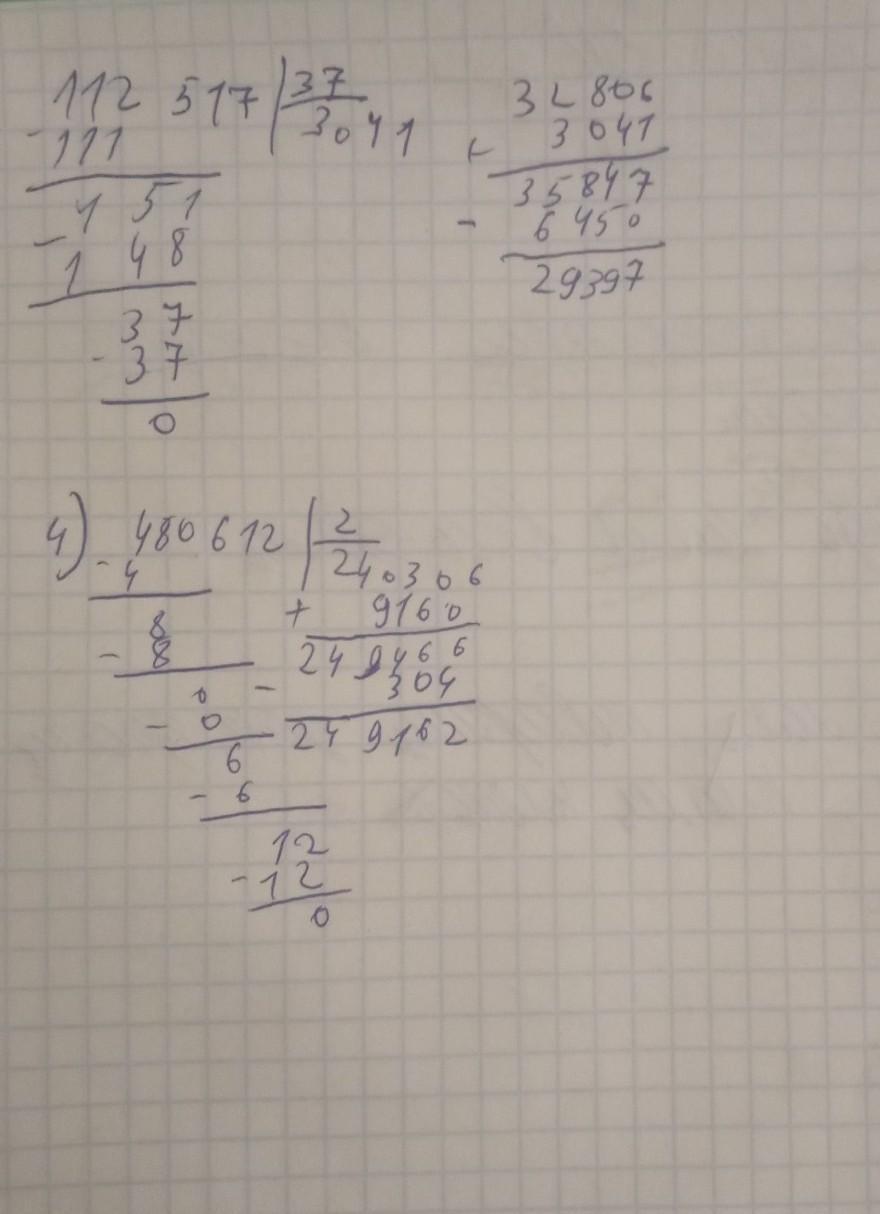 112 517 | 37
- 111 3041
151
- 148
37
- 37
0
32 806
+ 3041
35847
- 6450
29397
4) 480612 | 2
- 4 240306
8 + 9160
- 8 249466
0 - 304
- 0 249162
6
- 6
12
- 12
0